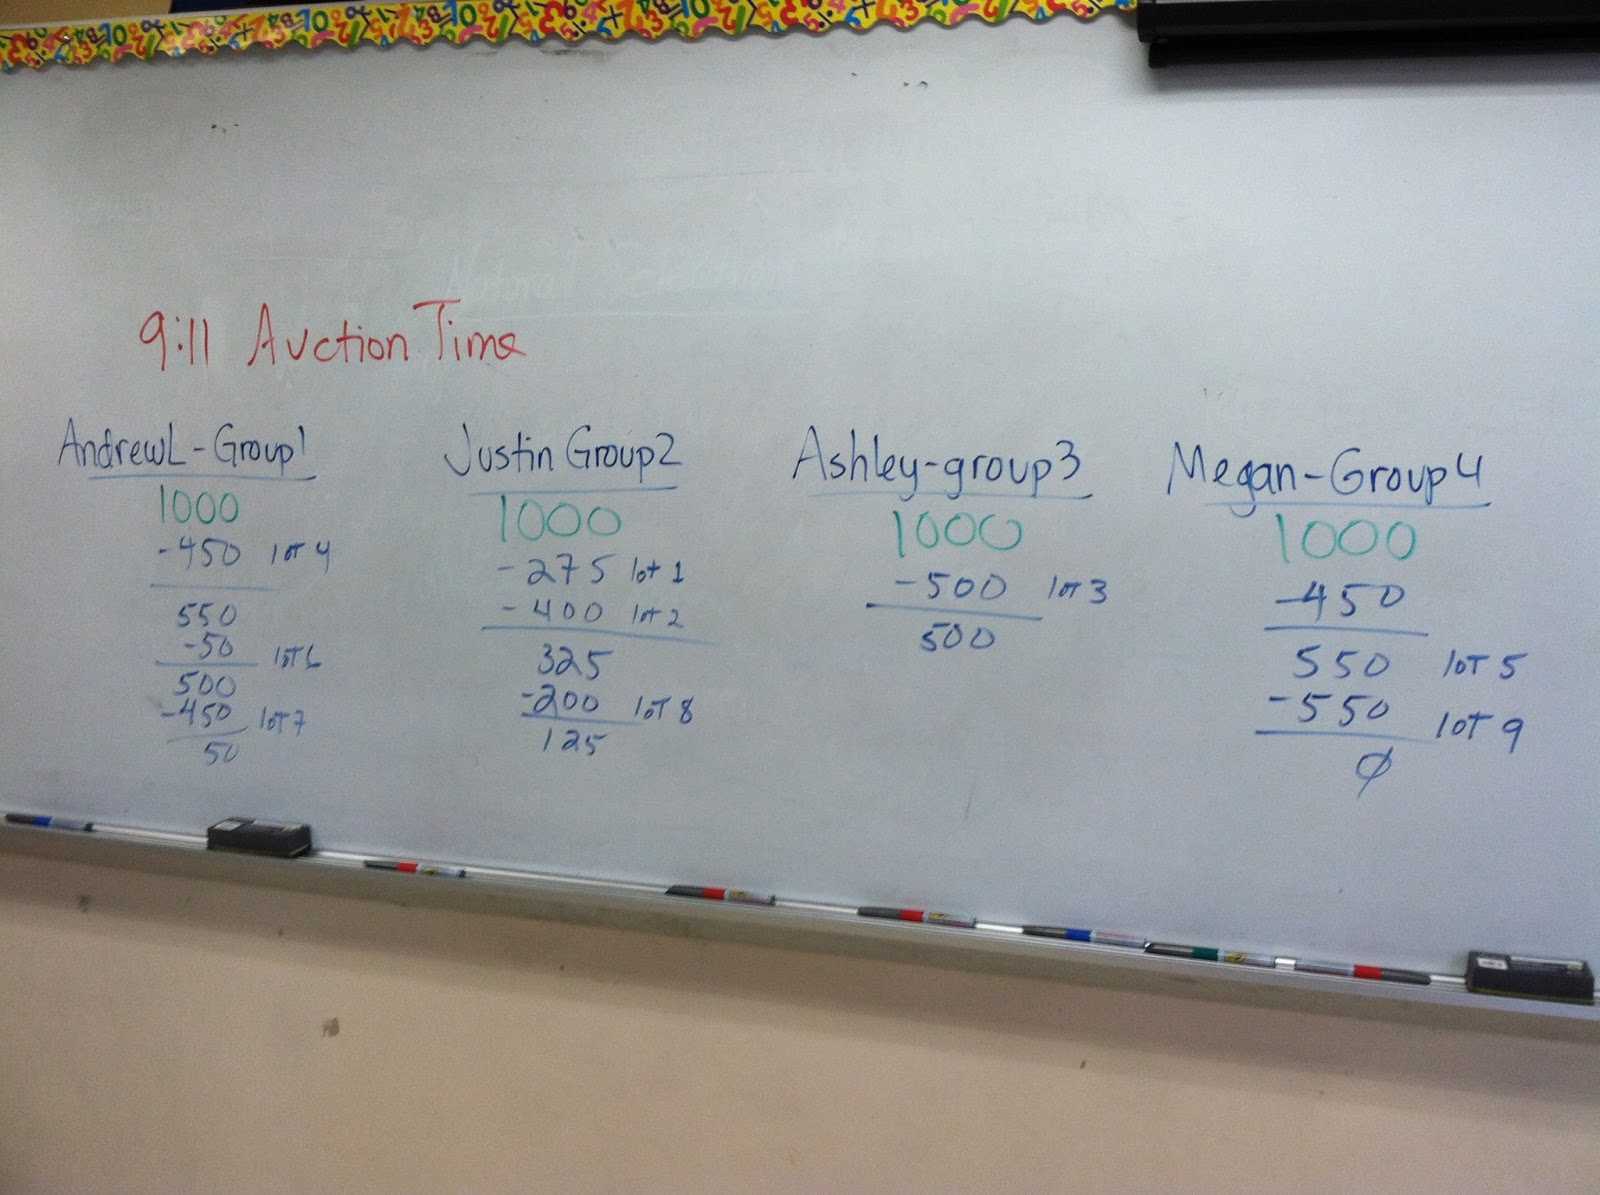 Natural Selection
9:11 Auction Time
AndrewL-Group1
1000
-450 lot 4
550
-50 lot 6
500
-450 lot 7
50
Justin Group2
1000
-275 lot 1
-400 lot 2
325
-200 lot 8
125
Ashley-group3
1000
-500 lot 3
500
Megan-Group4
1000
-450
550 lot 5
-550 lot 9
0